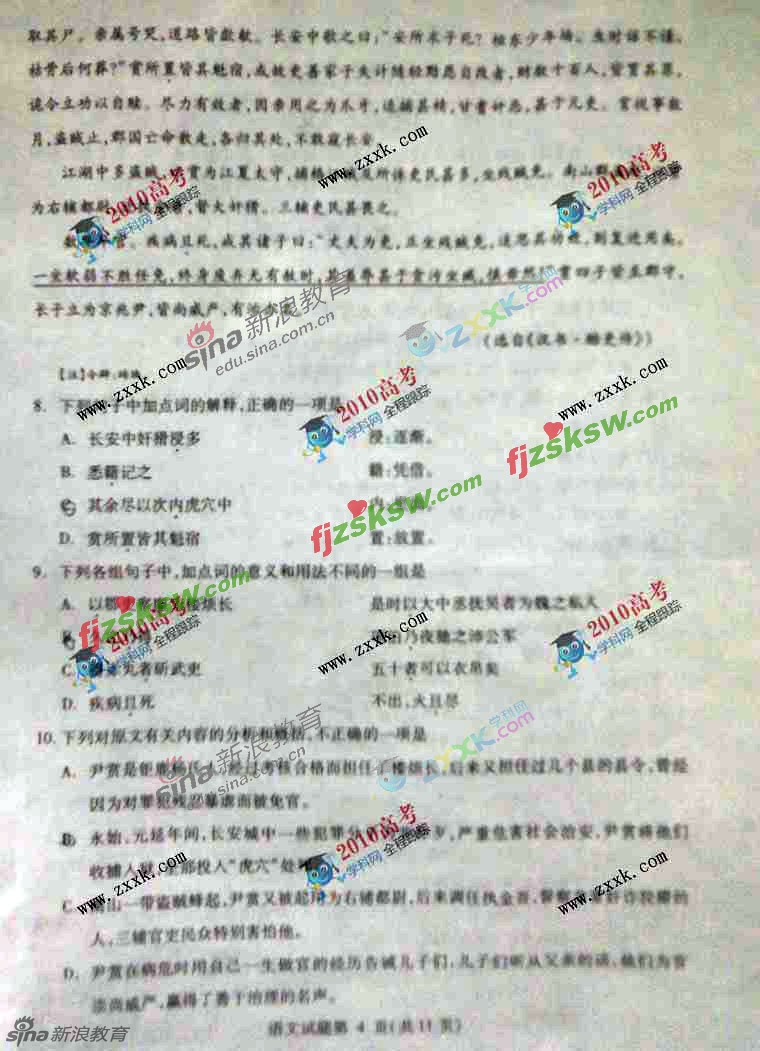 取其尸。亲属号哭,道路皆歔欷。长安中歌之曰:"安所求子死?桓东少年场。生时谅不谨,
枯骨后何葬?"赏所置皆其魁宿,或故吏善家子失计随轻黠愿自改者,财数十百人,皆贳其罪,
诡令立功以自赎。尽力有效者,因亲用之为爪牙,追捕甚精,甘耆奸恶,甚于凡吏。赏视事数
月,盗贼止,郡国亡命散走,各归其处,不敢窥长安。
江湖中多盗贼,赏为江夏太守,捕格 所诛吏民甚多,坐残贼免。南山群
为右辅都尉 督大奸猾。三辅吏民甚畏之。
数 官。疾病且死,戒其诸子曰:"丈夫为吏,正坐残贼免,追思其功效,则复进用矣。
一坐软弱不胜任免,终身废弃无有赦时,其羞辱甚于贪污坐臧,慎毋然!"赏四子皆至郡守,
长子立为京兆尹,皆尚威严,有治
(选自《汉书·酷吏传》)
[注]令辟:
8. 下列 子中加点词的解释,正确的一项是
A. 长安中奸猾浸多 浸:逐渐。
B. 悉籍记之 籍:凭借。
C. 其余尽以次内虎穴中 内:
D. 赏所置皆其魁宿 置:放置。
9. 下列各组句子中,加点词的意义和用法不同的一组是
A. 以 楼烦长 是时以大中丞抚吴者为魏之私人
B. 乃夜驰之沛公军
C. 丸者斫武吏 五十者可以衣帛矣
D. 疾病且死 不出,火且尽
10. 下列对原文有关内容的分析和概括,不正确的一项是
A. 尹赏是钜鹿杨氏人,经过考核合格而担任了楼烦长,后来又担任过几个县的县令,曾经
因为对罪犯残忍暴虐而被免官。
B. 永始、元延年间,长安城中一些犯罪分 ,严重危害社会治安,尹赏将他们
收捕入狱,全部投入"虎穴"处
C. 南山一带盗贼蜂起,尹赏又被起用为右辅都尉,后来调任执金吾,督察 奸诈狡猾的
人,三辅官吏民众特别害怕他。
D. 尹赏在病危时用自己一生做官的经历告诫儿子们,儿子们听从父亲的话,他们为官
崇尚威严,赢得了善于治理的名声。
语文试题第 4 页(共11页)
www.zxxk.com
2010高考
学科网 全程跟踪
sina新浪教育
edu.sina.com.cn
ZXXK.com
学科网
fjzsksw.com
sina新浪教育